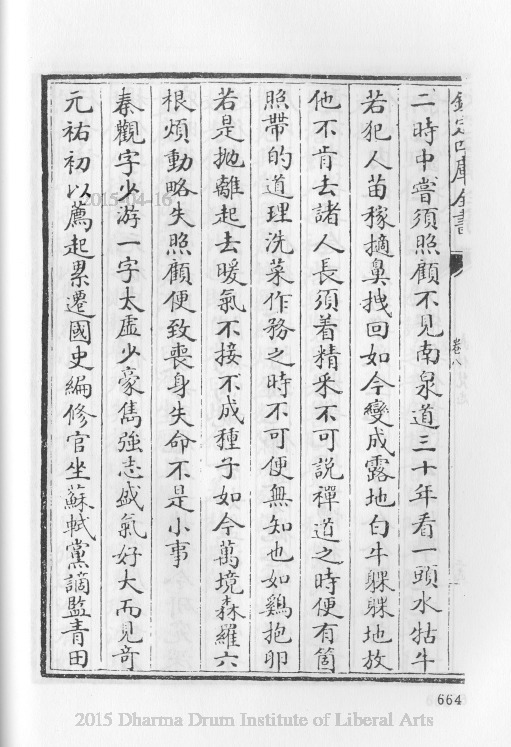 欽定四庫全書
卷八
二時中嘗須照顧不見南泉道三十年看一頭水牯牛
若犯人苗稼摘鼻拽回如今變成露地白牛躶躶地放
他不肯去諸人長須着精釆不可說禪道之時便有箇
照帶的道理洗菜作務之時不可便無知也如鷄抱卵
若是抛離起去暖氣不接不成種子如今萬境森羅六
根煩動略失照顧便致喪身失命不是小事
秦觀字少游一字太虛少豪雋強志盛氣好大而見竒
元祐初以薦起累遷國史編修官坐蘇軾黨謫監青田
2015-04-16
664
2015 Dharma Drum Institute of Liberal Arts